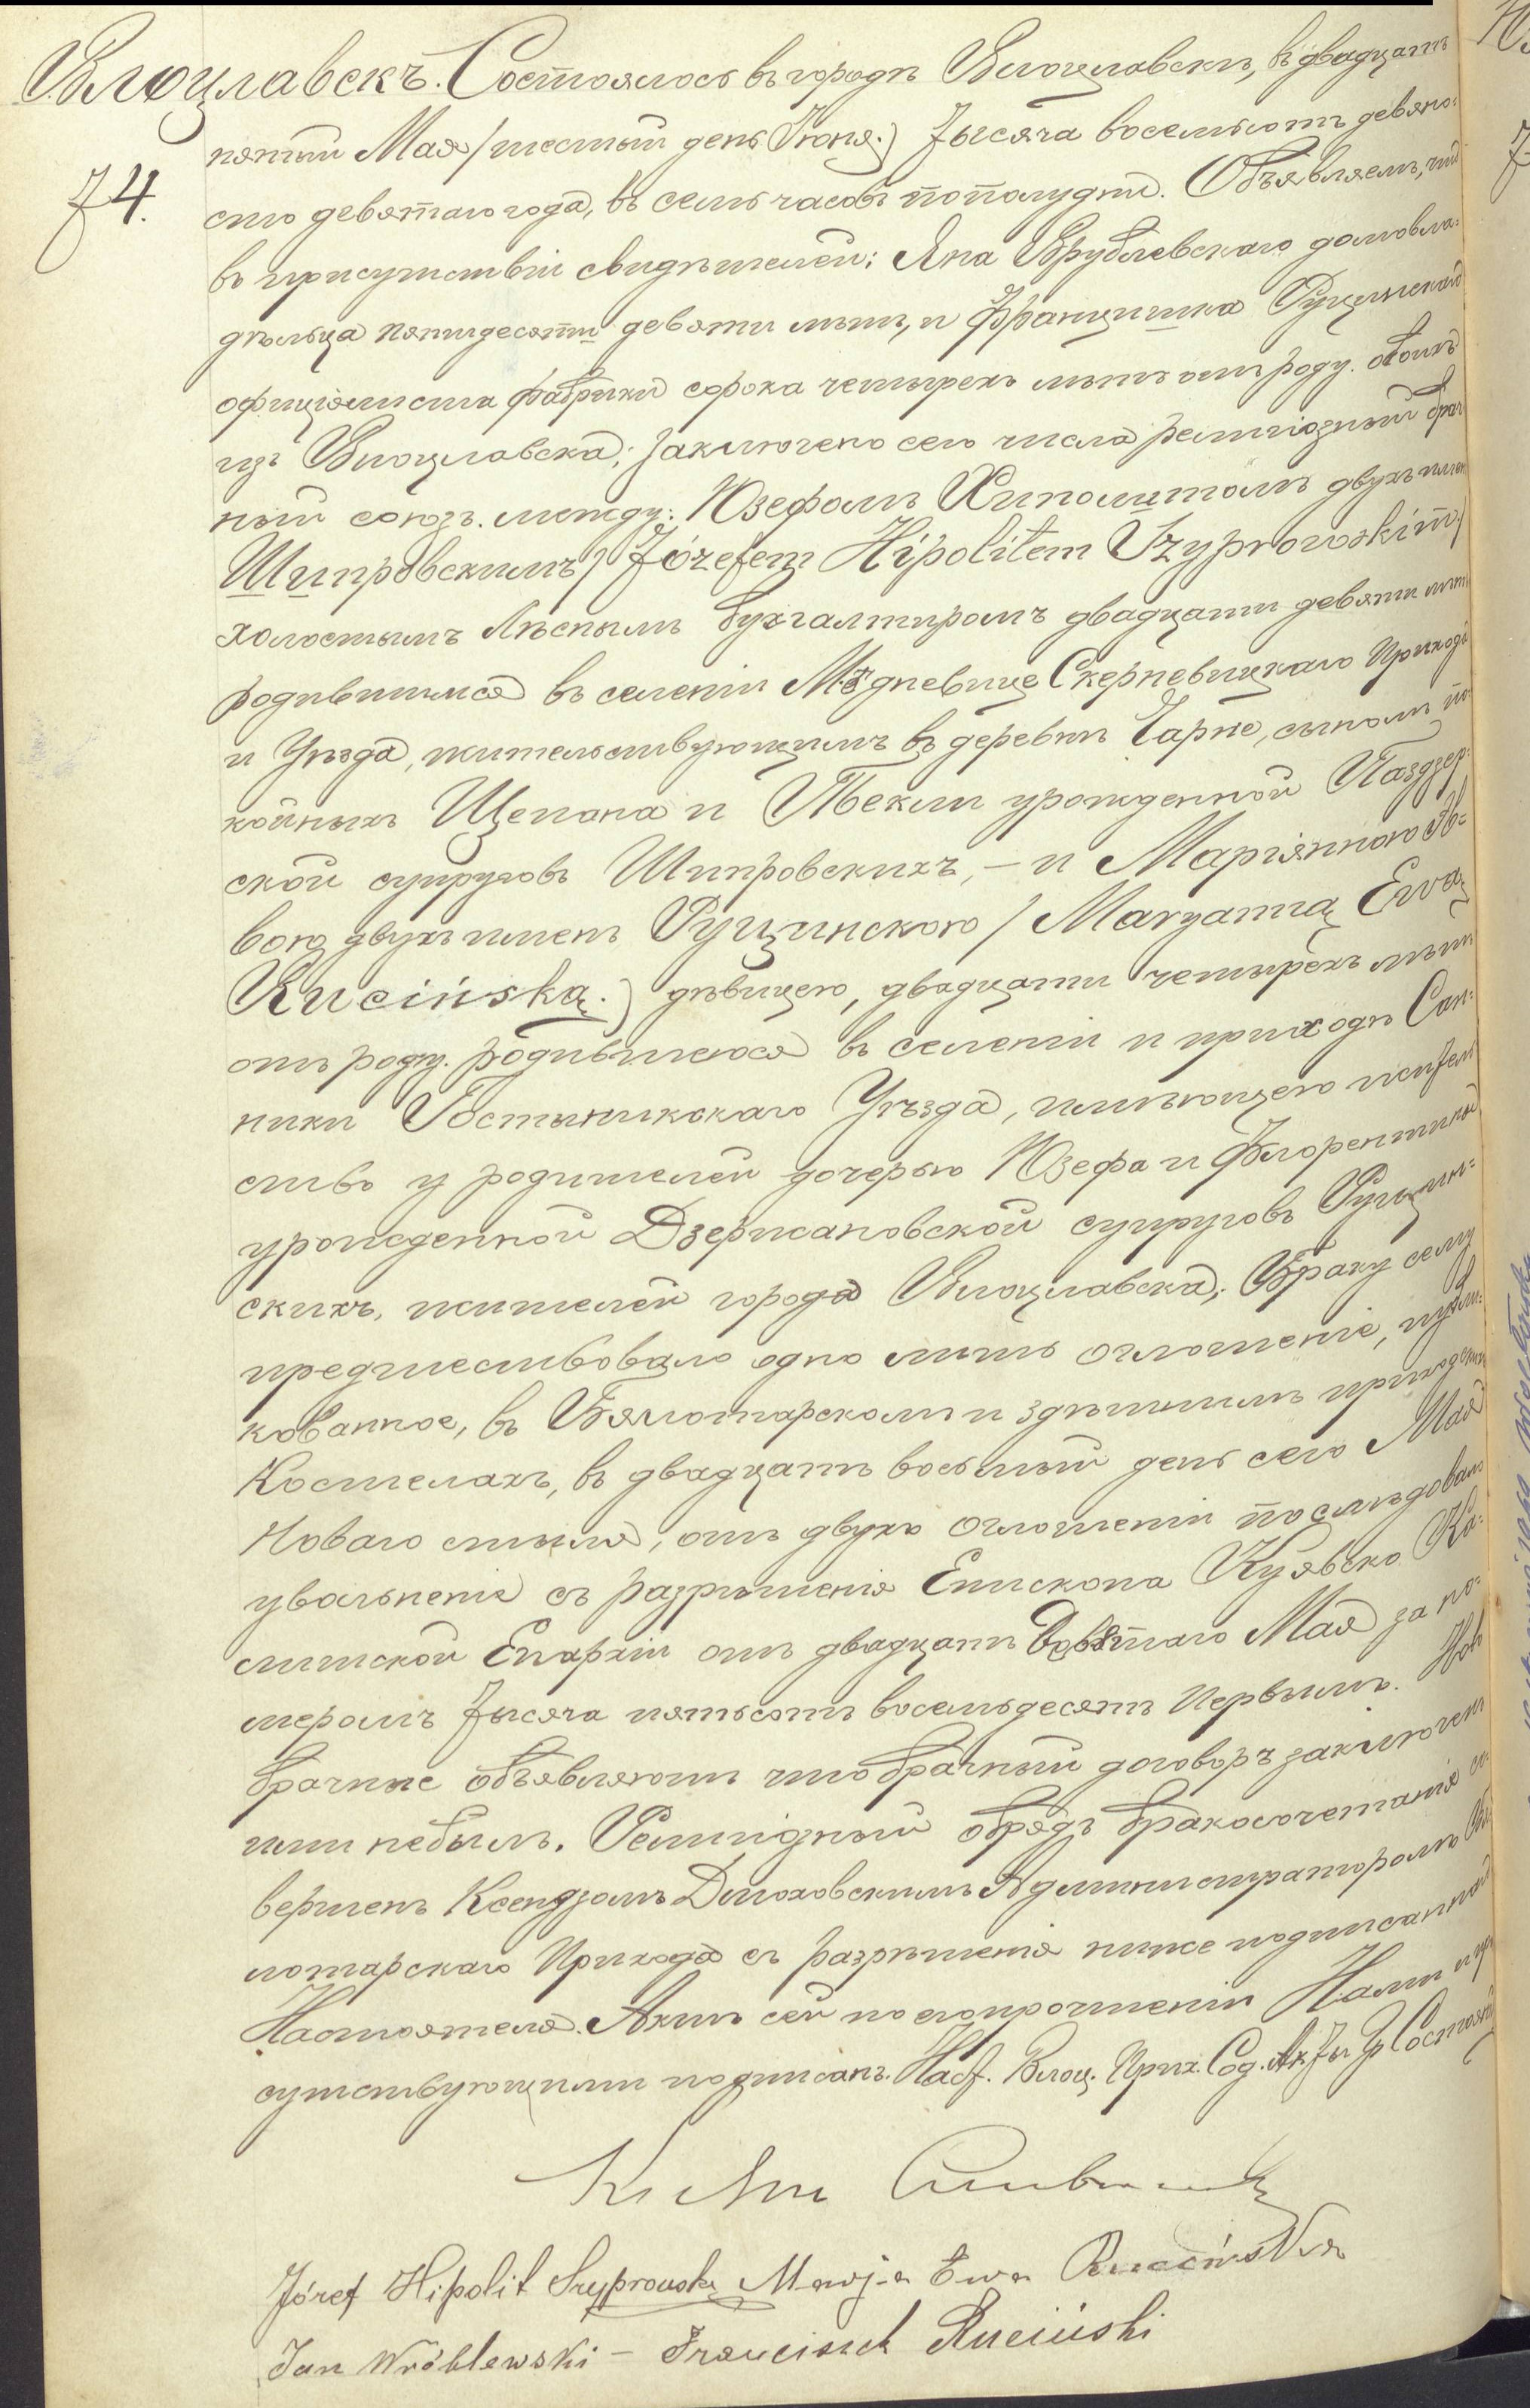 Влоцлавскъ. Состоялось въ городѣ Влоцлавскѣ, въ двадцать
74.
пятый Мая / шестый день Іюня.) Тысяча восемьсотъ девяно-
сто девятаго года, въ семь часовъ пополудни. Объявляемъ, что
въ присутствіи свидѣтелей: Яна Врублевскаго домовла-
дѣльца пятидесяти девяти лѣтъ, и Францишка Руцинскаго
оффиціялиста фабрики сорока четырехъ лѣтъ отъ роду. обоихъ
изъ Влоцлавска; заключено сего числа религіозный брач
ный союзъ. между: Юзефомъ Хиполитомъ двухъ имен
Шипровскимъ / Józefem Hipolitem Szyprowskim)
холостымъ лѣснымъ бухгалтиромъ двадцати девяти лѣтъ
родившимся въ селеніи Мѣдневице Скерневицкаго Прихода
и Уѣзда, жительствующимъ въ деревнѣ Чарне, сыномъ по-
койныхъ Щепана и Теклы урожденной Паздзер-
ской супруговъ Шипровскихъ, – и Маріянною Э-
вою двухъ именъ Руцинскою / Maryanną Ewą
Rucińską.) дѣвицею, двадцати четырехъ лѣтъ
отъ роду. родившеюся въ селеніи и приходѣ Сан-
ники Гостынинскаго Уѣзда, имѣющею жител
ство у родителей дочерью Юзефа и Флорентины
урожденной Дзержановской супруговъ Руцин-
скихъ, жителей города Влоцлавска; Браку сему
предшествовало одно лишь оглошеніе, публи-
кованное, въ Бялотарскомъ и здѣшнимъ приходскихъ
Костелахъ, въ двадцать восьмый день сего Мая
Новаго стыля, отъ двухъ оглошеній послѣдовало
увольненіе съ разрѣшенія Епископа Куявско Ка-
лишской Епархіи отъ двадцать девятаго Мая за но-
меромъ Тысяча пятьсотъ восемьдесятъ первымъ. Ново
брачные объявляютъ что брачный договоръ заключенъ
ими небылъ. Религіозный обрядъ бракосочетанія со-
вершенъ Ксендзомъ Дмоховскимъ Администраторомъ Бя-
лотарскаго Прихода съ разрѣшенія ниже подписаннаго
Настоятеля. Актъ сей по его прочтеніи Нами и при
сутствующими подписанъ. Наст. Влоц. Прих. Сод. Ак. Гр. Состоянія
Józef Hipolit Szyprowski Marja Ewa Rucińska
Jan Wróblewski – Franciszek Ruciński